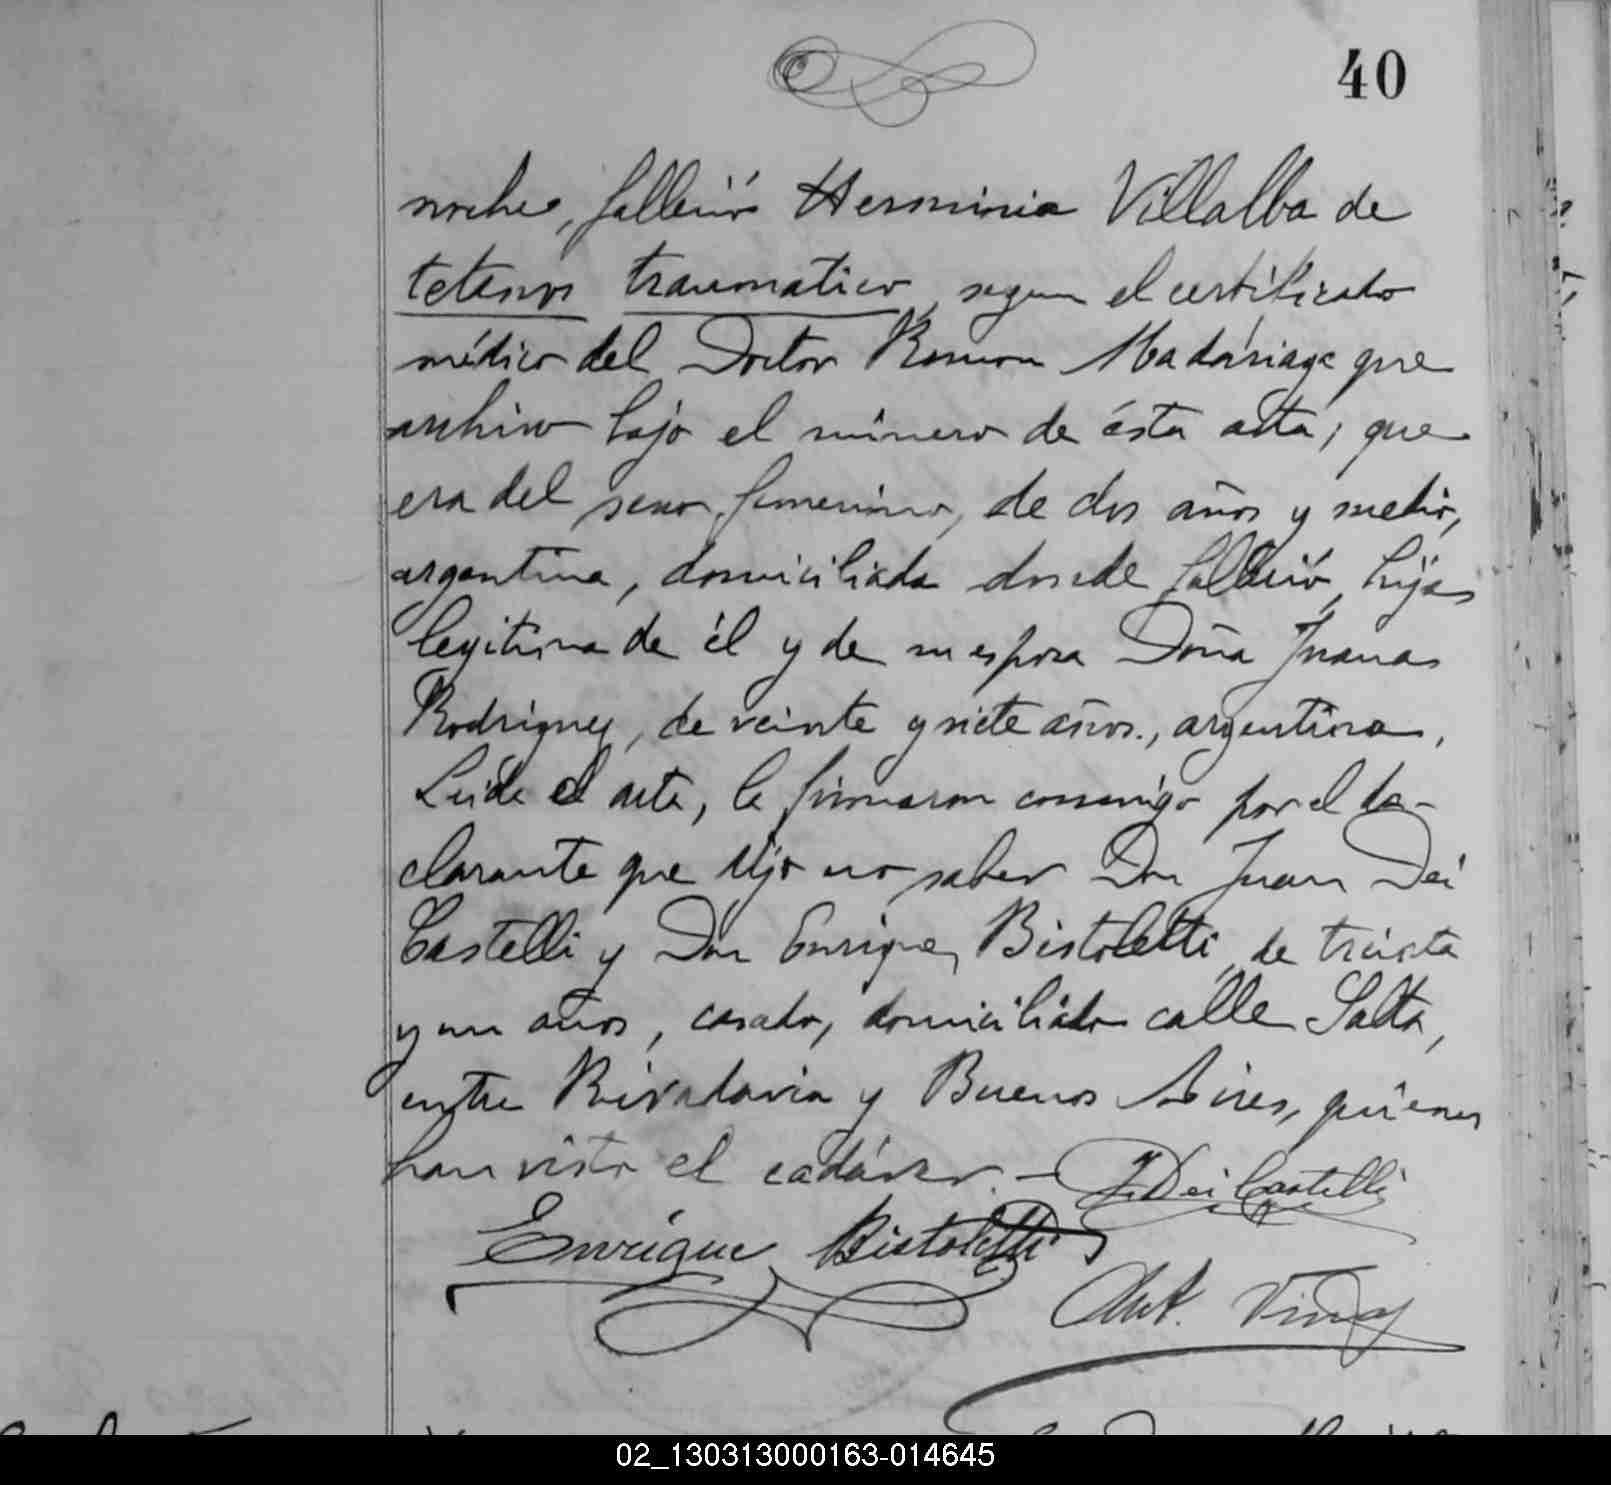 40
noche, falleció Herminia Villalba de
tetanos traumatico, segun el certificado
médico del Doctor Ramon Madáriaga que
archivo bajo el número de ésta acta; que
era del sexo femenino, de dos años y medio,
argentina, domiciliada donde falleció, hija
legitima de él y de su esposa Doña Juana
Rodriguez, de veinte y siete años, argentina.
Leida el acta, la firmaron conmigo por el de-
clarante que dijo no saber Don Juan Dei
Castelli y Don Enrique Bistoletti, de treinta
y un años, casado, domiciliado calle Salta,
entre Rivadavia y Buenos Aires, quienes
han visto el cadáver. - J. Dei Castelli
Enrique Bistoletti
Ant.
02_130313000163-014645